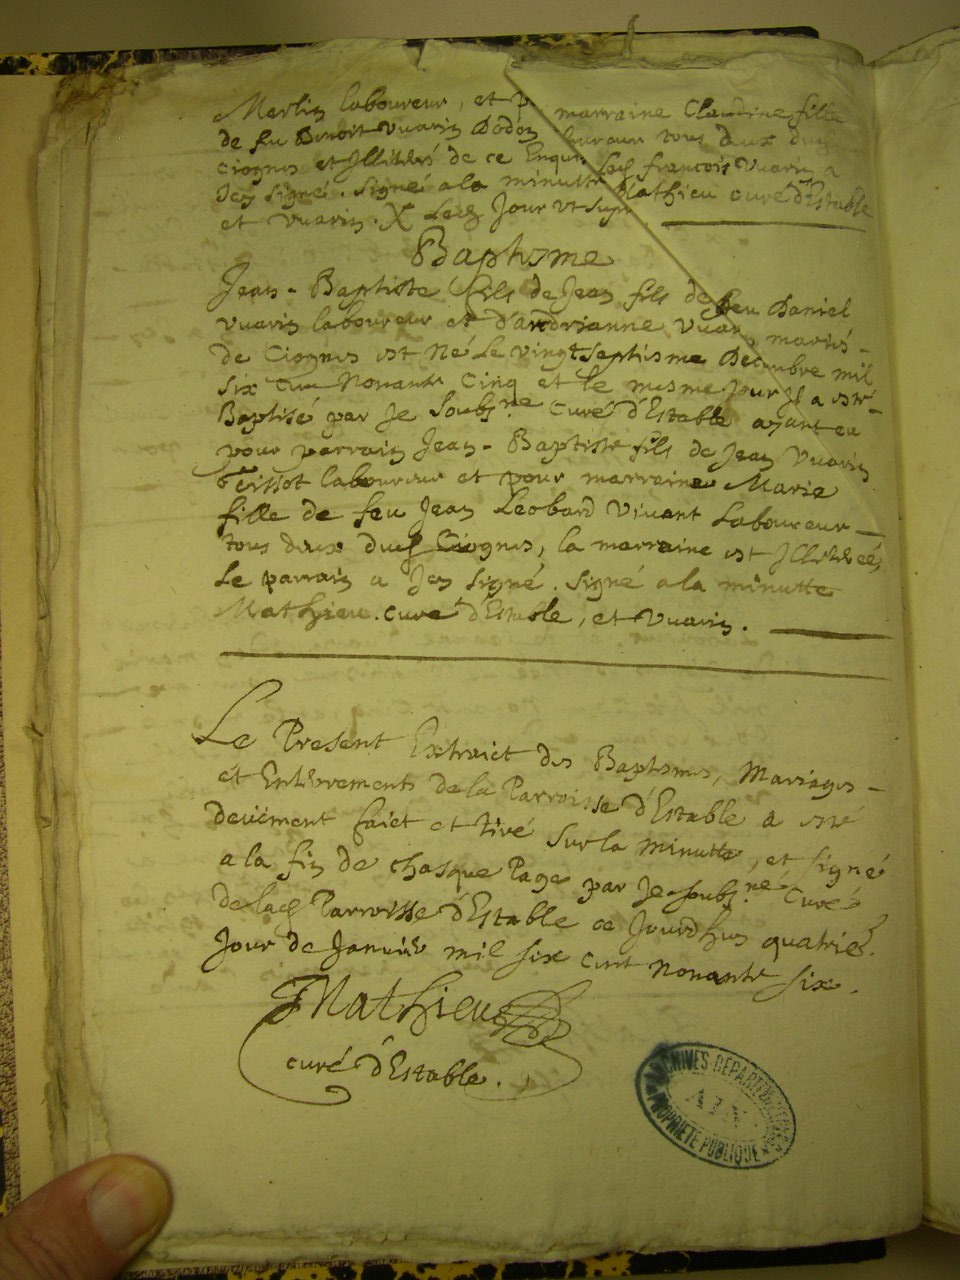 Merlin laboureur, et p marraine Claudine fille
de feu Benoit Vuarin Dodon laboureur tous deux dud
Ciognes et Illiterés de ce Enquis Led françois Vuarin a
Jey signé. signé a la minutte Mathieu curé d'Estable
et Vuarin. X Led Jour vt supr
Baptesme
Jean-Baptiste fils de Jean fils de feu Daniel
Vuarin laboureur et d'andrianne Vuar mariés-
de Ciognes est Né Le vingtseptiesme Decembre mil
six Cent Nonante Cinq et le mesme Jour Il a esté-
Baptisé par Je Soubs.né Curé d'Estable ayant eu
pour parrain Jean-Baptiste fils de Jean Vuarin
Teissot laboureur et pour marraine Marie
fille de feu Jean Leobard Viuant Laboureur
tous deux dud Ciognes, la marraine est Illiterée,
Le parrain a Jey signé. Signé a la minutte
Mathieu. curé d'Estable, et Vuarin.
Le Present Extraict des Baptesmes, Mariages-
et Enterrements de la Parroisse d'Estable a esté
deüement faict et tiré sur la minutte, et signé
a la fin de chasque Page par Je soubs.né Curé
de lad Parroisse d'Estable ce Jourd'huy quatrie.
Jour de Januier mil six cent nonante six.
Mathieu
curé d'Estable.
ARCHIVES DÉPARTEMENTALES
AIN
PROPRIÉTÉ PUBLIQUE